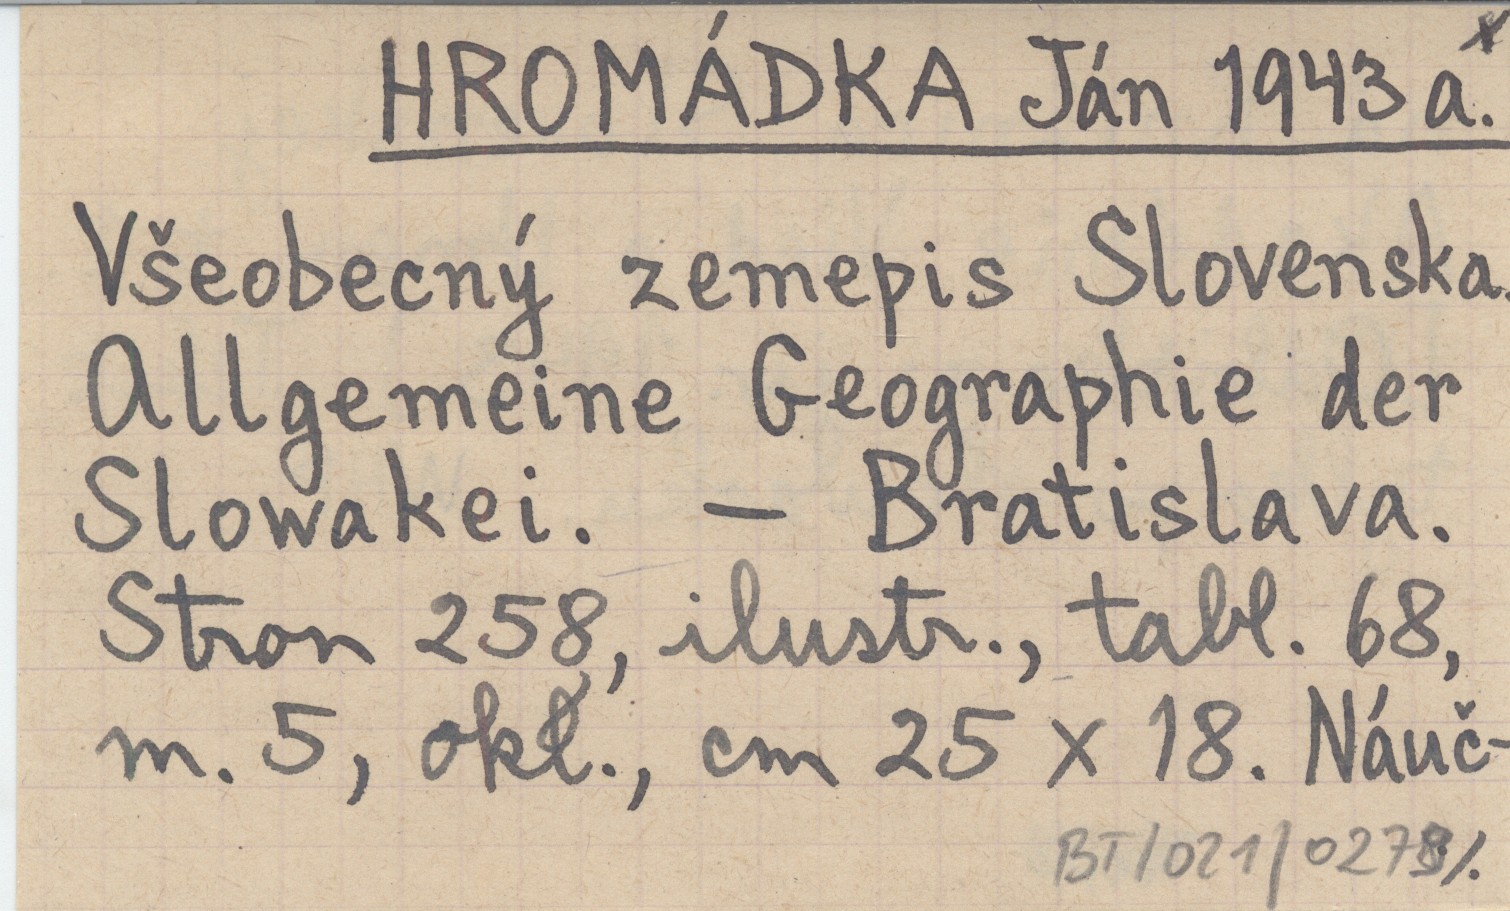 x
HROMÁDKA Ján 1943 a.
Všeobecný zemepis Slovenska.
Allgemeine Geographie der
Slowakei. — Bratislava.
Stron 258, ilustr., tabl. 68,
m. 5, okł., cm 25 x 18. Náuč-
BT/021/0278/.